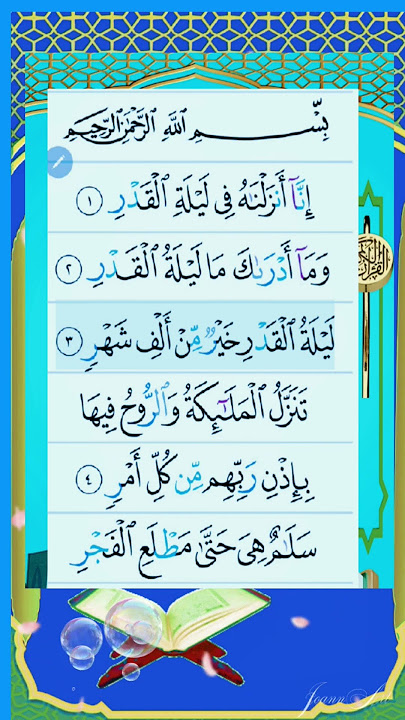 بِسْمِ ٱللَّهِ ٱلرَّحْمَٰنِ ٱلرَّحِيمِ
إِنَّآ أَنزَلْنَٰهُ فِى لَيْلَةِ ٱلْقَدْرِ ١
وَمَآ أَدْرَىٰكَ مَا لَيْلَةُ ٱلْقَدْرِ ٢
لَيْلَةُ ٱلْقَدْرِ خَيْرٌ مِّنْ أَلْفِ شَهْرٍ ٣
تَنَزَّلُ ٱلْمَلَٰٓئِكَةُ وَٱلرُّوحُ فِيهَا
بِإِذْنِ رَبِّهِم مِّن كُلِّ أَمْرٍ ٤
سَلَٰمٌ هِىَ حَتَّىٰ مَطْلَعِ ٱلْفَجْرِ